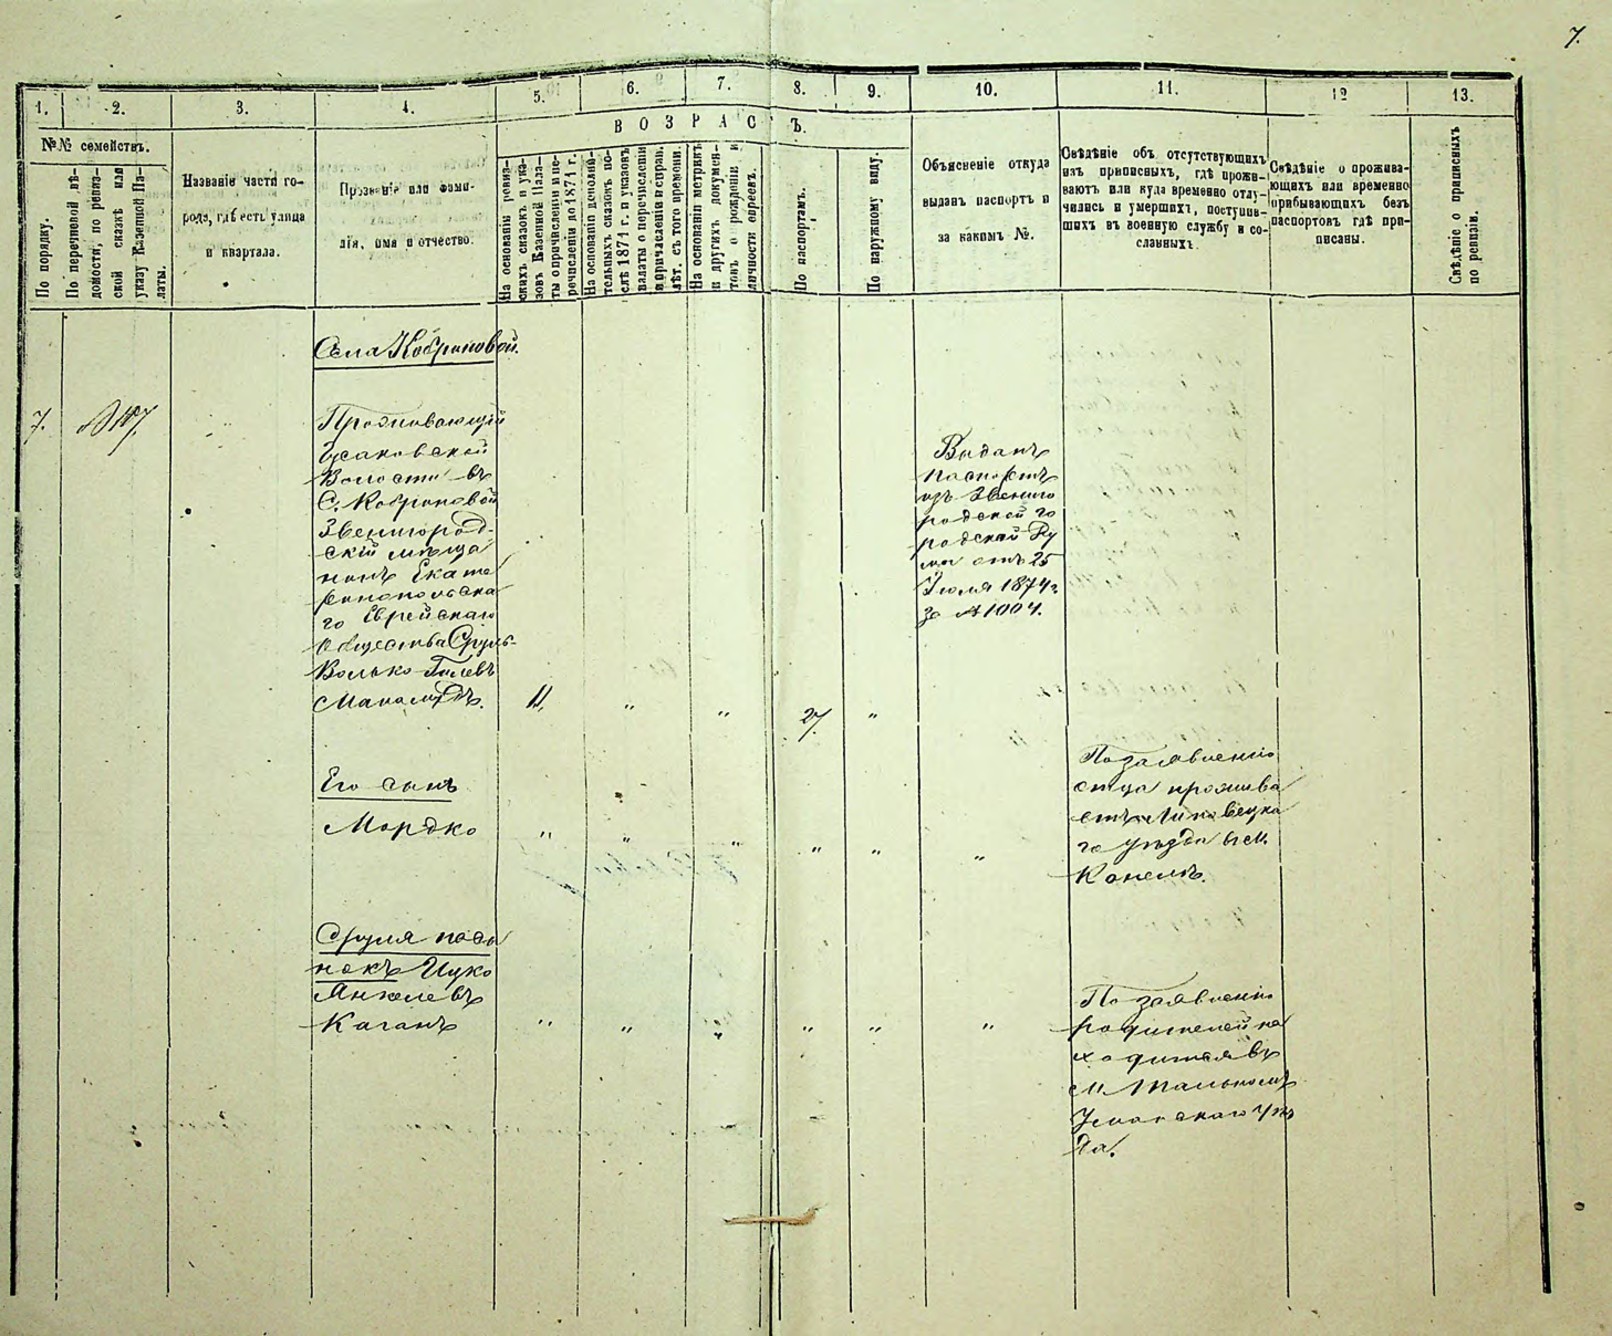 7.
1. 2. 3. 4. 5. 6. 7. 8. 9. 10. 11. 12 13.
№№ семействъ.
По порядку.
По перечневой вѣ-
домости, по ревиз-
ской сказкѣ или
указу Казенной Па-
латы.
Названіе части го-
рода, гдѣ есть улица
и квартала.
Прозваніе или фами-
лія, имя и отчество.
ВОЗРАСТЪ.
На основаніи ревиз-
скихъ сказокъ и ука-
зовъ Казенной Пала-
ты о причисленіи и пе-
речисленіи до 1871 г.
На основаніи дополни-
тельныхъ сказокъ по-
слѣ 1871 г. и указовъ
палаты о перечисленіи
и причисленіи и справ.
лѣт. съ того времени.
На основаніи метрикъ
и другихъ докумен-
товъ о рожденіи и
личности евреевъ.
По паспортамъ.
По наружному виду.
Объясненіе откуда
выданъ паспортъ и
за какимъ №.
Свѣдѣніе объ отсутствующихъ
изъ приписныхъ, гдѣ прожи-
ваютъ или куда временно отлу-
чились и умершихъ, поступив-
шихъ въ военную службу и со-
сланныхъ.
Свѣдѣніе о прожива-
ющихъ или временно
прибывающихъ безъ
паспортовъ гдѣ при-
писаны.
Свѣдѣніе о приписныхъ
по ревизіи.
Села Кобриновой.
7.
Проживающій
Гусаковской
Волости въ
С. Кобриновой
Звенигород-
скій мѣща
нинъ Екате
ринопольска
го Еврейскаго
Общества Сруль-
Волько
11. " " 27. "
Выданъ
паспортъ
изъ Звениго
родской го
родской Ду
мы отъ 25
Іюля 1874 г.
за № 1004.
Его сынъ
Мордко " " " " " "
По заявленію
отца прожива
етъ Липовецка
го уѣзда въ м.
Конелѣ.
Сруля пасы
нокъ Ицко
Янкелевъ
Каганъ " " " " " "
По заявленію
родителей на
ходится въ
м. Тальномъ
Уманскаго уѣз
да.